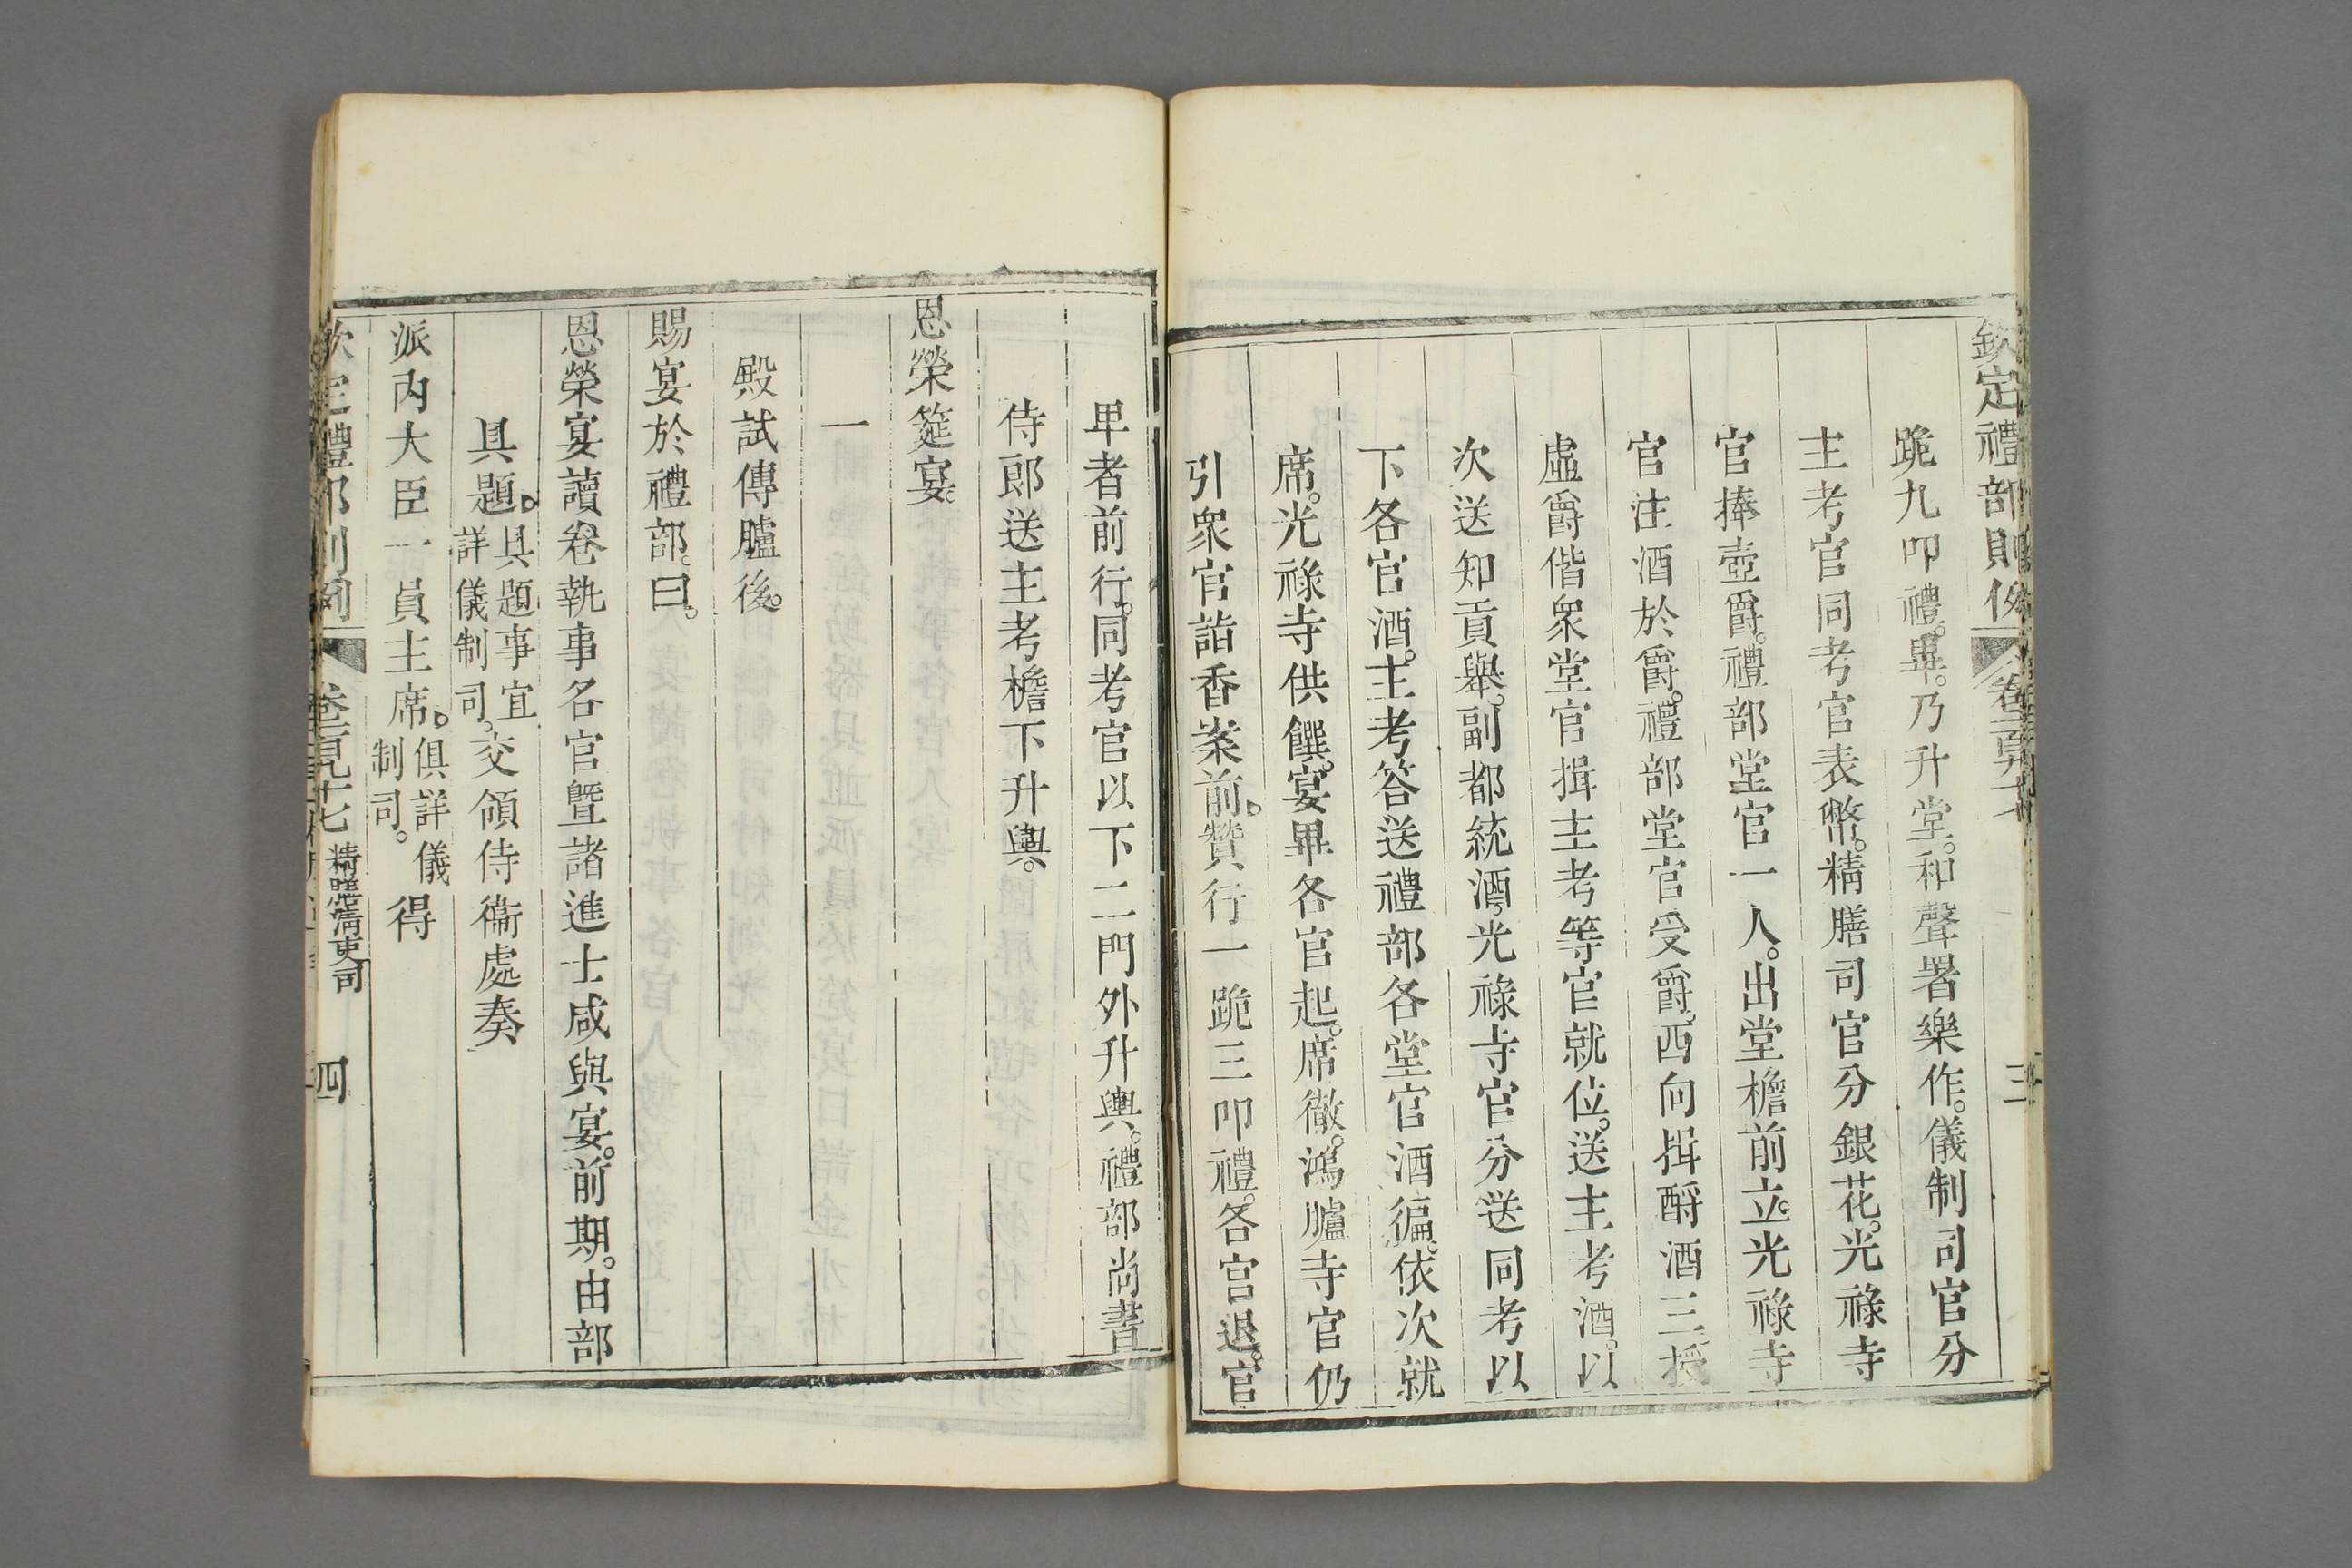 欽定禮部則例 卷二百九十七 三
跪九叩禮。畢。乃升堂。和聲署樂作。儀制司官分
主考官同考官表幣。精膳司官分銀花。光祿寺
官捧壺爵。禮部堂官一人。出堂檐前立。光祿寺
官注酒於爵。禮部堂官受爵。西向揖酹酒三。授
虛爵偕衆堂官揖主考等官就位。送主考酒。以
次送知貢舉。副都統酒。光祿寺官分送同考以
下各官酒。主考答送禮部各堂官酒徧。依次就
席。光祿寺供饌。宴畢各官起。席徹。鴻臚寺官仍
引衆官詣香案前。贊行一跪三叩禮。各官退。官
卑者前行。同考官以下二門外升輿。禮部尚書
侍郎送主考檐下升輿。
恩榮筵宴。
一
殿試傳臚後。
賜宴於禮部。曰。
恩榮宴讀卷執事各官暨諸進士咸與宴。前期。由部
具題。具題事宜詳儀制司。交領侍衞處奏
派內大臣一員主席。俱詳儀制司。得
欽定禮部則例 卷二百九十七 精膳清吏司 四